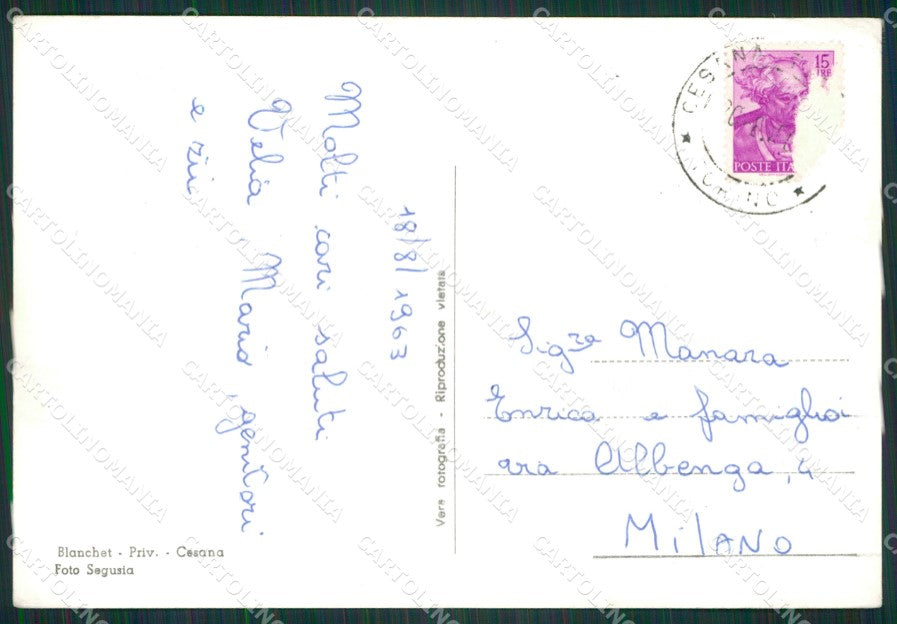 18/8/1963
Molti cari saluti
Velia Mario, genitori
e zii
CESANA
TORINO
15
LIRE
POSTE ITA
Sig.ra Manara
Enrica e famiglia
via Albenga, 4
MILANO
Vera rotografia - Riproduzione vietata
Blanchet - Priv. - Cesana
Foto Segusia
CARTOLINOMANIA